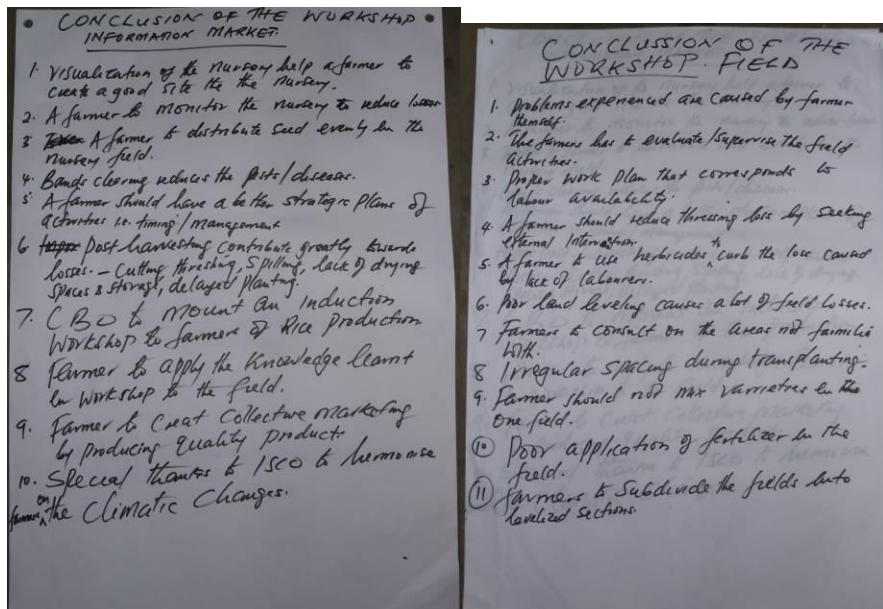 CONCLUSION OF THE WORKSHOP
INFORMATION MARKET.
1. Visualization of the nursery help a farmer to
create a good site the the nursery.
2. A farmer to monitor the nursery to reduce losses
3 A farmer to distribute seed evenly in the
nursery field.
4. Bands clearing reduces the pests/diseases.
5. A farmer should have a better strategic plans of
activities i.e. timing/management
6. Post harvesting contribute greatly towards
losses. – Cutting, threshing, spilling, lack of drying
spaces & storage, delayed planting.
7. CBO to mount an induction
workshop to farmers of Rice Production
8 Farmer to apply the knowledge learnt
in workshop to the field.
9. Farmer to Creat Collective marketing
by producing quality products
10. Special thanks to ISCO to hermonise
farmers on the climatic changes.
CONCLUSSION OF THE
WORKSHOP. FIELD
1. Problems experienced are caused by farmer
themself.
2. The farmers has to evaluate/supervise the field
activities.
3. Proper work plan that corresponds to
labour availability.
4. A farmer should reduce thressing loss by seeking
external
5. A farmer to use herbicides to curb the lose caused
by lack of labourers.
6. Poor land leveling causes a lot of field losses.
7 Farmers to consult on the areas not
with.
8 Irregular spacing during transplanting.
9. Farmer should not mix varieties in the
one field.
10 Poor application of fertilizer in the
field.
11 farmers to subdivide the fields into
levelized sections.